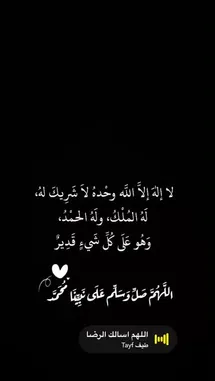 لا إلهَ إلاَّ اللَّه وحْدهُ لاَ شَرِيكَ لهُ،
لَهُ المُلْكُ، ولَهُ الحمْدُ،
وَهُو عَلَى كُلِّ شَيءٍ قَدِيرٌ
اللَّهُمَّ صَلِّ وَسَلِّم عَلَى نَبِيِّنَا مُحَمَّد
اللهم اسالك الرضا
طيف Tayf